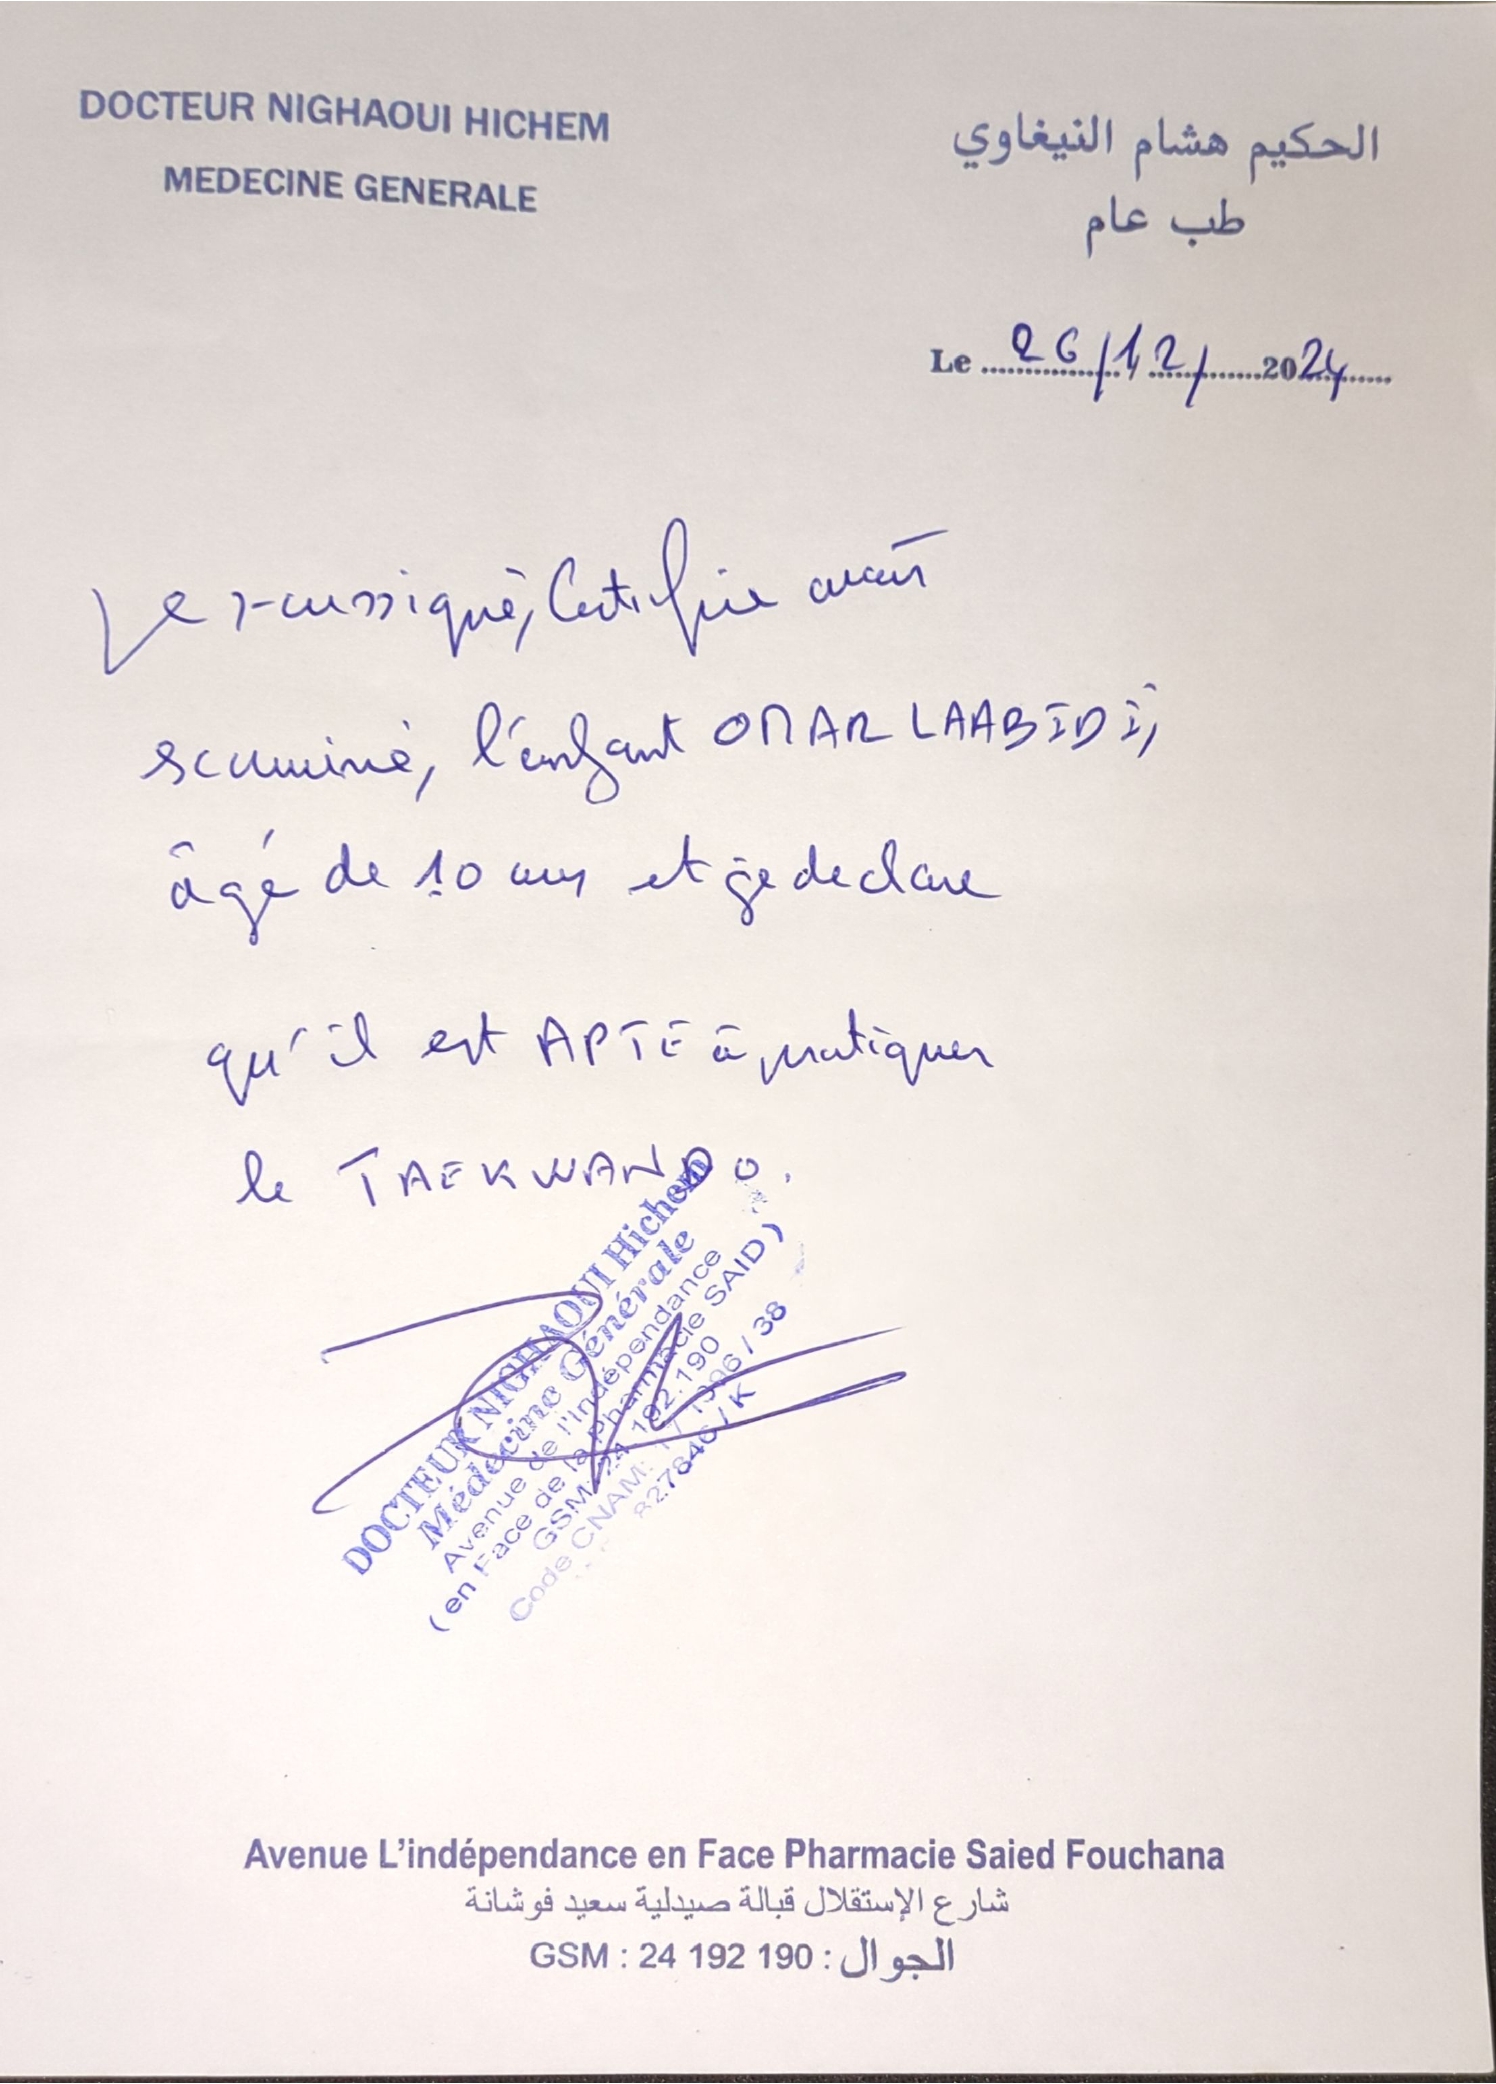 DOCTEUR NIGHAOUI HICHEM
MEDECINE GENERALE
الحكيم هشام النيغاوي
طب عام
Le 26/12/2024
Le soussigné, Certifie avoir
examiné, l'enfant OMAR LAABIDI,
âgé de 10 ans et je declare
qu'il est APTE à pratiquer
le TAEKWANDO.
DOCTEUR NIGHAOUI Hichem
Médecine Générale
Avenue de l'Indépendance
(en Face de la Pharmacie SAID)
GSM: 24 192.190
Code CNAM: 1996 / 38
827846 / K
Avenue L'indépendance en Face Pharmacie Saied Fouchana
شارع الإستقلال قبالة صيدلية سعيد فوشانة
GSM : 24 192 190 : الجوال